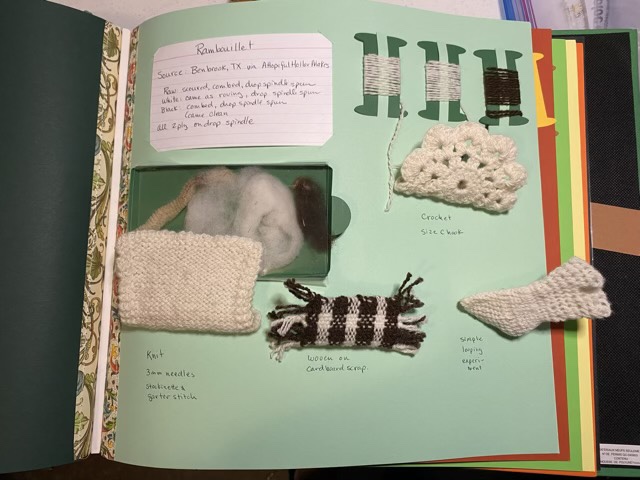 Rambouillet
Source: Benbrook, TX via AHopefulHellerMakes
Raw: scoured, combed, drop spindle spun
White: came as roving, drop spindle spun
Black: combed, drop spindle spun
(came clean
all 2ply on drop spindle
Crochet
size C hook
Knit
3mm needles
stockinette &
garter stitch
woven on
cardboard scrap
simple
looping
experi-
ment